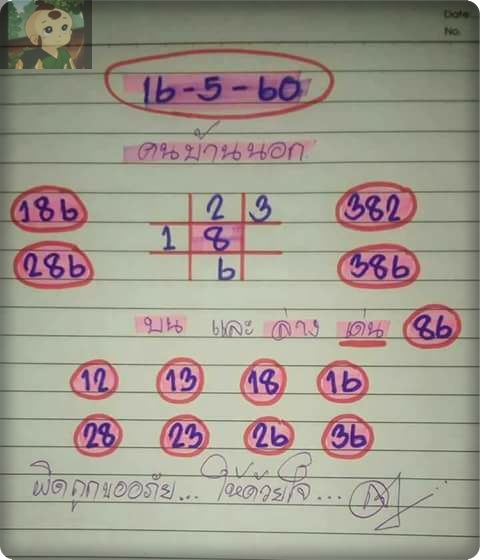 Date
No.
16-5-60
คนบ้านนอก
186 2 3 382
1 8
286 6 386
บน และ ล่าง เด่น 86
12 13 18 16
28 23 26 36
ผิดถูกขออภัย... ให้ด้วยใจ...